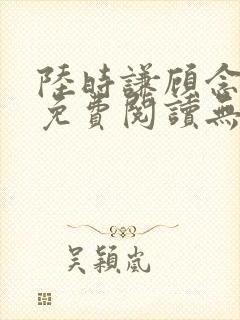 陸時謙顾念
免費閱讀無
吴穎嵐